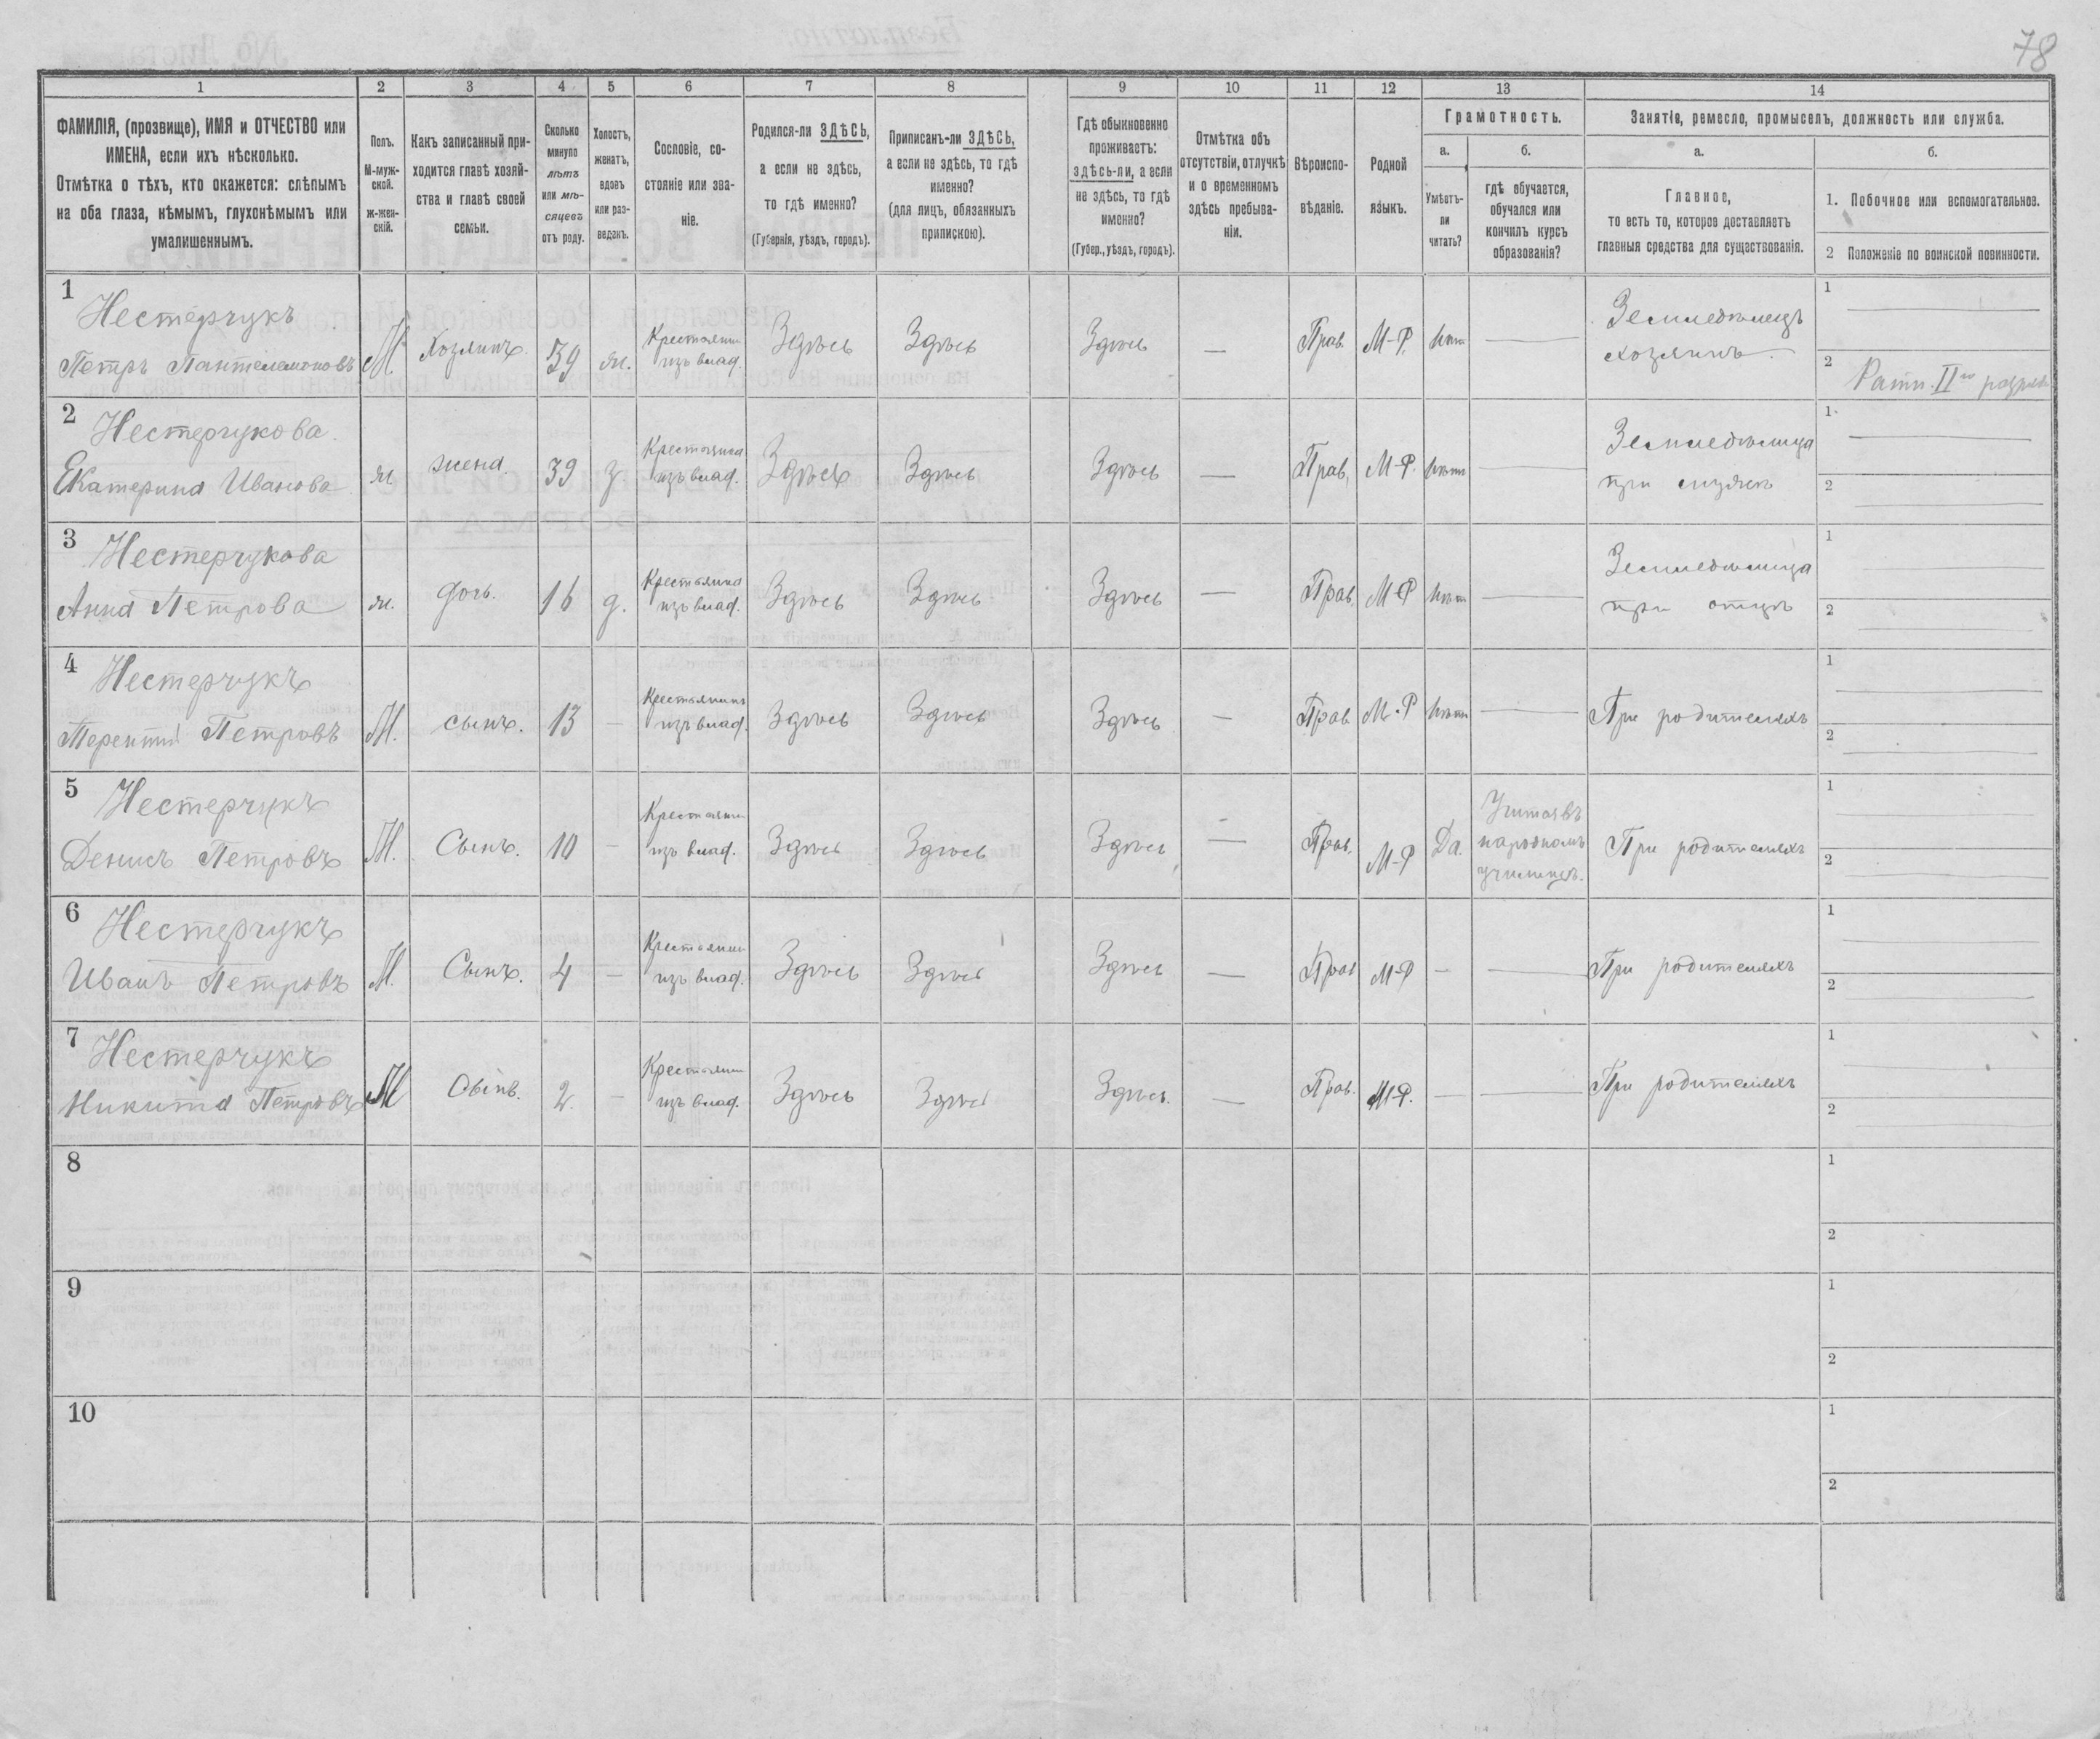 78
1 2 3 4 5 6 7 8 9 10 11 12 13 14
ФАМИЛІЯ, (прозвище), ИМЯ и ОТЧЕСТВО или
ИМЕНА, если ихъ нѣсколько.
Отмѣтка о тѣхъ, кто окажется: слѣпымъ
на оба глаза, нѣмымъ, глухонѣмымъ или
умалишеннымъ.
Полъ.
М-муж-
ской.
ж-жен-
скій.
Какъ записанный при-
ходится главѣ хозяй-
ства и главѣ своей
семьи.
Сколько
минуло
лѣтъ
или мѣ-
сяцевъ
отъ роду.
Холостъ,
женатъ,
вдовъ
или раз-
веденъ.
Сословіе, со-
стояніе или зва-
ніе.
Родился-ли ЗДѢСЬ,
а если не здѣсь,
то гдѣ именно?
(Губернія, уѣздъ, городъ).
Приписанъ-ли ЗДѢСЬ,
а если не здѣсь, то гдѣ
именно?
(для лицъ, обязанныхъ
припискою).
Гдѣ обыкновенно
проживаетъ:
здѣсь-ли, а если
не здѣсь, то гдѣ
именно?
(Губер., уѣздъ, городъ).
Отмѣтка объ
отсутствіи, отлучкѣ
и о временномъ
здѣсь пребыва-
ніи.
Вѣроиспо-
вѣданіе.
Родной
языкъ.
Грамотность.
а.
Умѣетъ-
ли
читать?
б.
гдѣ обучается,
обучался или
кончилъ курсъ
образованія?
Занятіе, ремесло, промыселъ, должность или служба.
а.
Главное,
то есть то, которое доставляетъ
главныя средства для существованія.
б.
1. Побочное или вспомогательное.
2 Положеніе по воинской повинности.
1
Нестерчукъ
Петръ Пантелемоновъ
М. Хозяинъ. 39 ж.
Крестьянин
изъ влад.
Здѣсь Здѣсь Здѣсь — Прав. М-Р. Нѣт —
Земледѣлецъ
хозяинъ.
1
2 Ратн. II го разряд
2
Нестерчукова.
Екатерина Иванова
ж жена. 39 з.
Крестьянка
изъ влад.
Здѣсь Здѣсь Здѣсь — Прав. М-Р. Нѣт
Земледѣлица
при мужѣ
1
2
3
Нестерчукова
Анна Петрова
ж. дочь. 16 д.
Крестьянка
изъ влад.
Здѣсь Здѣсь Здѣсь — Прав. М-Р Нѣт —
Земледѣлица
при отцѣ
1
2
4
Нестерчукъ
Терентій Петровъ
М. сынъ. 13 —
Крестьянинъ
изъ влад.
Здѣсь Здѣсь Здѣсь — Прав. М-Р Нѣт —
При родителяхъ
1
2
5
Нестерчукъ
Денисъ Петровъ
М. Сынъ. 10 —
Крестьянин
изъ влад.
Здѣсь Здѣсь Здѣсь — Прав. М-Р Да.
Учится въ
народномъ
училищѣ.
При родителяхъ
1
2
6
Нестерчукъ
Иванъ Петровъ
М. Сынъ. 4 —
Крестьянин
изъ влад.
Здѣсь Здѣсь Здѣсь — Прав М-Р — —
При родителяхъ
1
2
7
Нестерчукъ
Никита Петровъ
М Сынъ. 2. —
Крестьянин
изъ влад.
Здѣсь Здѣсь Здѣсь. — Прав. М-Р. — —
При родителяхъ
1
2
8
1
2
9
1
2
10
1
2